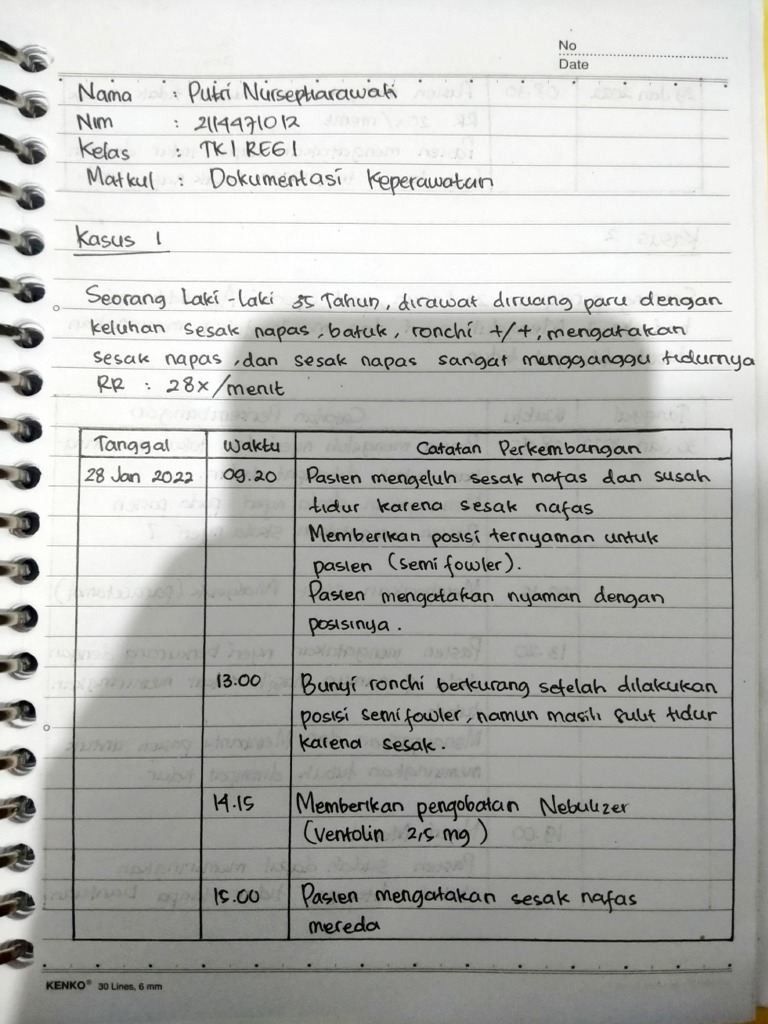 No
Date
Nama : Putri Nurseptiarawati
Nim : 2114471012
Kelas : TK 1 REG 1
Matkul : Dokumentasi Keperawatan
Kasus 1
Seorang Laki-laki 35 Tahun, dirawat diruang paru dengan
keluhan sesak napas, batuk, ronchi +/+, mengatakan
sesak napas, dan sesak napas sangat mengganggu tidurnya
RR : 28x/menit
Tanggal Waktu Catatan Perkembangan
28 Jan 2022 09.20 Pasien mengeluh sesak nafas dan susah
tidur karena sesak nafas
Memberikan posisi ternyaman untuk
pasien (semi fowler).
Pasien mengatakan nyaman dengan
posisinya.
13.00 Bunyi ronchi berkurang setelah dilakukan
posisi semifowler, namun masih sulit tidur
karena sesak.
14.15 Memberikan pengobatan Nebulizer
(Ventolin 2,5 mg)
15.00 Pasien mengatakan sesak nafas
mereda
KENKO® 30 Lines, 6 mm